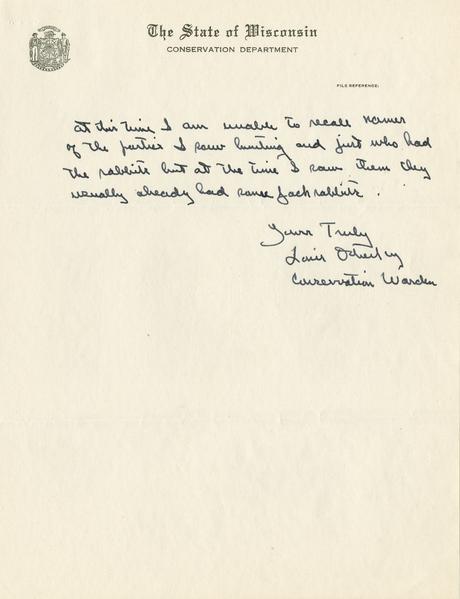 The State of Wisconsin
CONSERVATION DEPARTMENT
FILE REFERENCE:
at this time I am unable to recall names
of the parties I saw hunting and just who had
the rabbits but at the time I saw them they
usually already had some jackrabbits.
Yours Truly
Louis
Conservation Warden